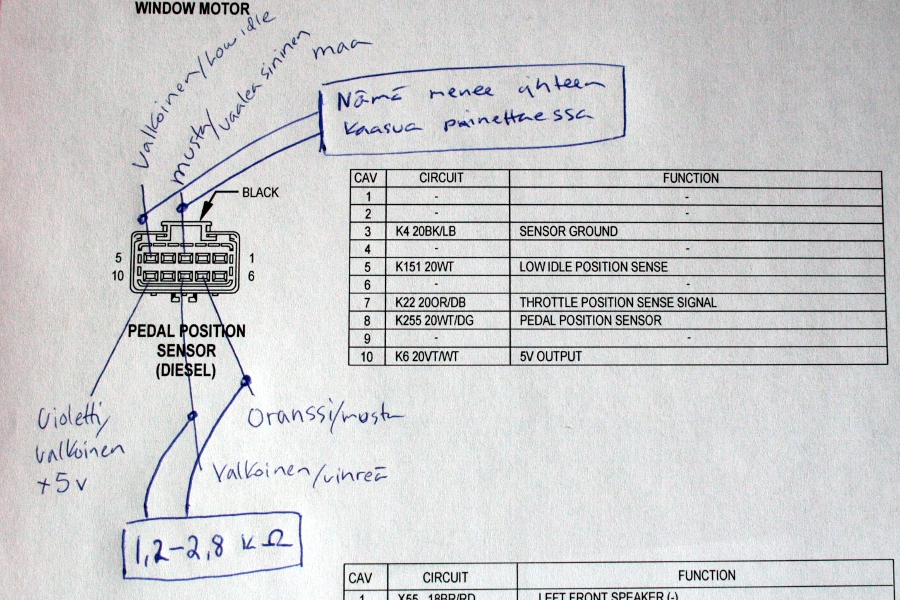 WINDOW MOTOR
Valkoinen/Low idle
musta/vaalea sininen
maa
Nämä menee yhteen
kaasua painettaessa
BLACK
5 1
10 6
PEDAL POSITION
SENSOR
(DIESEL)
CAV CIRCUIT FUNCTION
1 - -
2 - -
3 K4 20BK/LB SENSOR GROUND
4 - -
5 K151 20WT LOW IDLE POSITION SENSE
6 - -
7 K22 20OR/DB THROTTLE POSITION SENSE SIGNAL
8 K255 20WT/DG PEDAL POSITION SENSOR
9 - -
10 K6 20VT/WT 5V OUTPUT
Violetti/
valkoinen
+5v
Oranssi/musta
Valkoinen/vihreä
1,2-2,8 KΩ
CAV CIRCUIT FUNCTION
1 X55 18BR/RD LEFT FRONT SPEAKER (-)